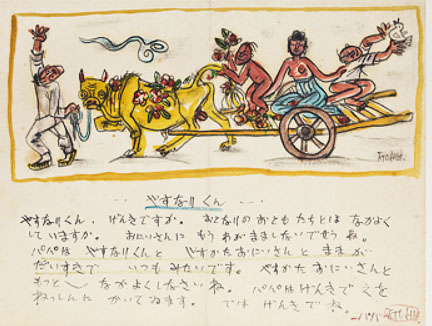 ㅈㅜㅇㅅㅓㅂ
・・ やすなりくん ・・・
やすなりくん、げんきですか。 おとなりのおともたちとは なかよく
していますか。 おにいさんに もう わがまましないでせう ね。
パパは やすなりくんと やすかたおにいさんと ままが
だいすきで いつも みたいです。 やすかた おにいさんと
もっと〳〵 なかよくしなさい ね。 パパはげんきで えを
ねっしんに かいてゐます。 では げんきで ね。
パパ ㅈㅜㅇㅅㅓㅂ